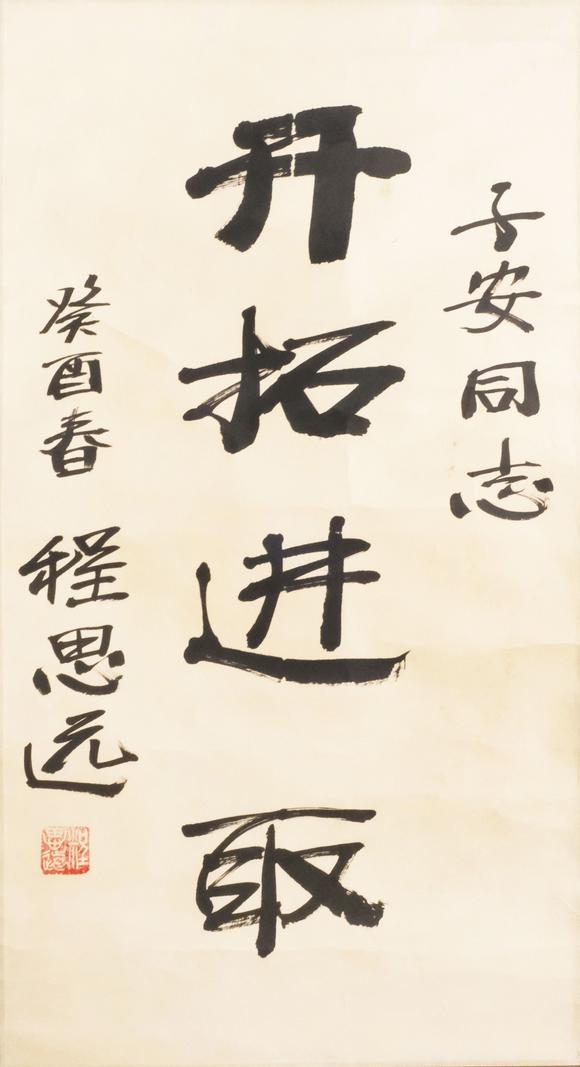 子安同志
开拓进取
癸酉春 程思远